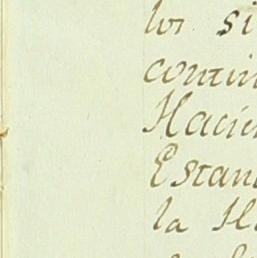 los si
contin
Hacien
Estan
la H